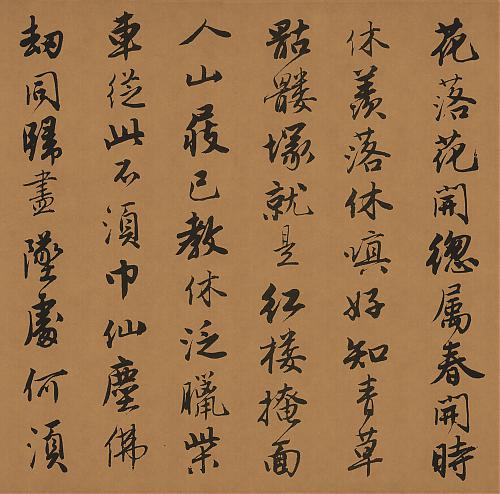 花落花開緫属春開時
休羨落休嗔好知青草
骷髏塚就是紅樓掩面
人山屐已教休泛臘柴
車從此不須巾仙塵佛
劫同歸盡墜處何須